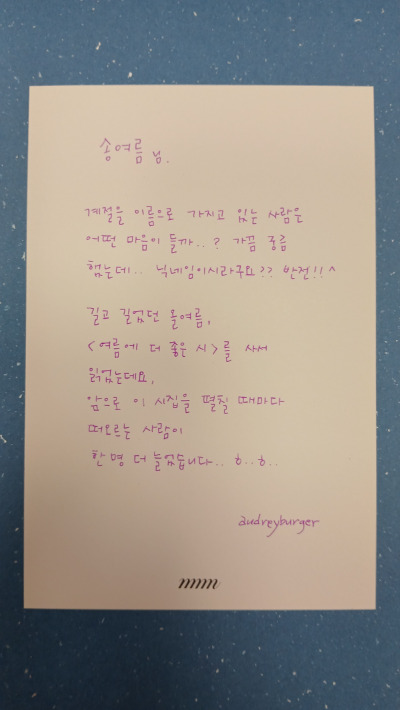 송여름 님.
계절을 이름으로 가지고 있는 사람은
어떤 마음이 들까..? 가끔 궁금
했는데.. 닉네임이시라구요?? 반전!! ^
길고 길었던 올여름,
<여름에 더 좋은 시>를 사서
읽었는데요,
앞으로 이 시집을 펼칠 때마다
떠오르는 사람이
한 명 더 늘었습니다.. ㅎ..ㅎ..
audreyburger
mmm